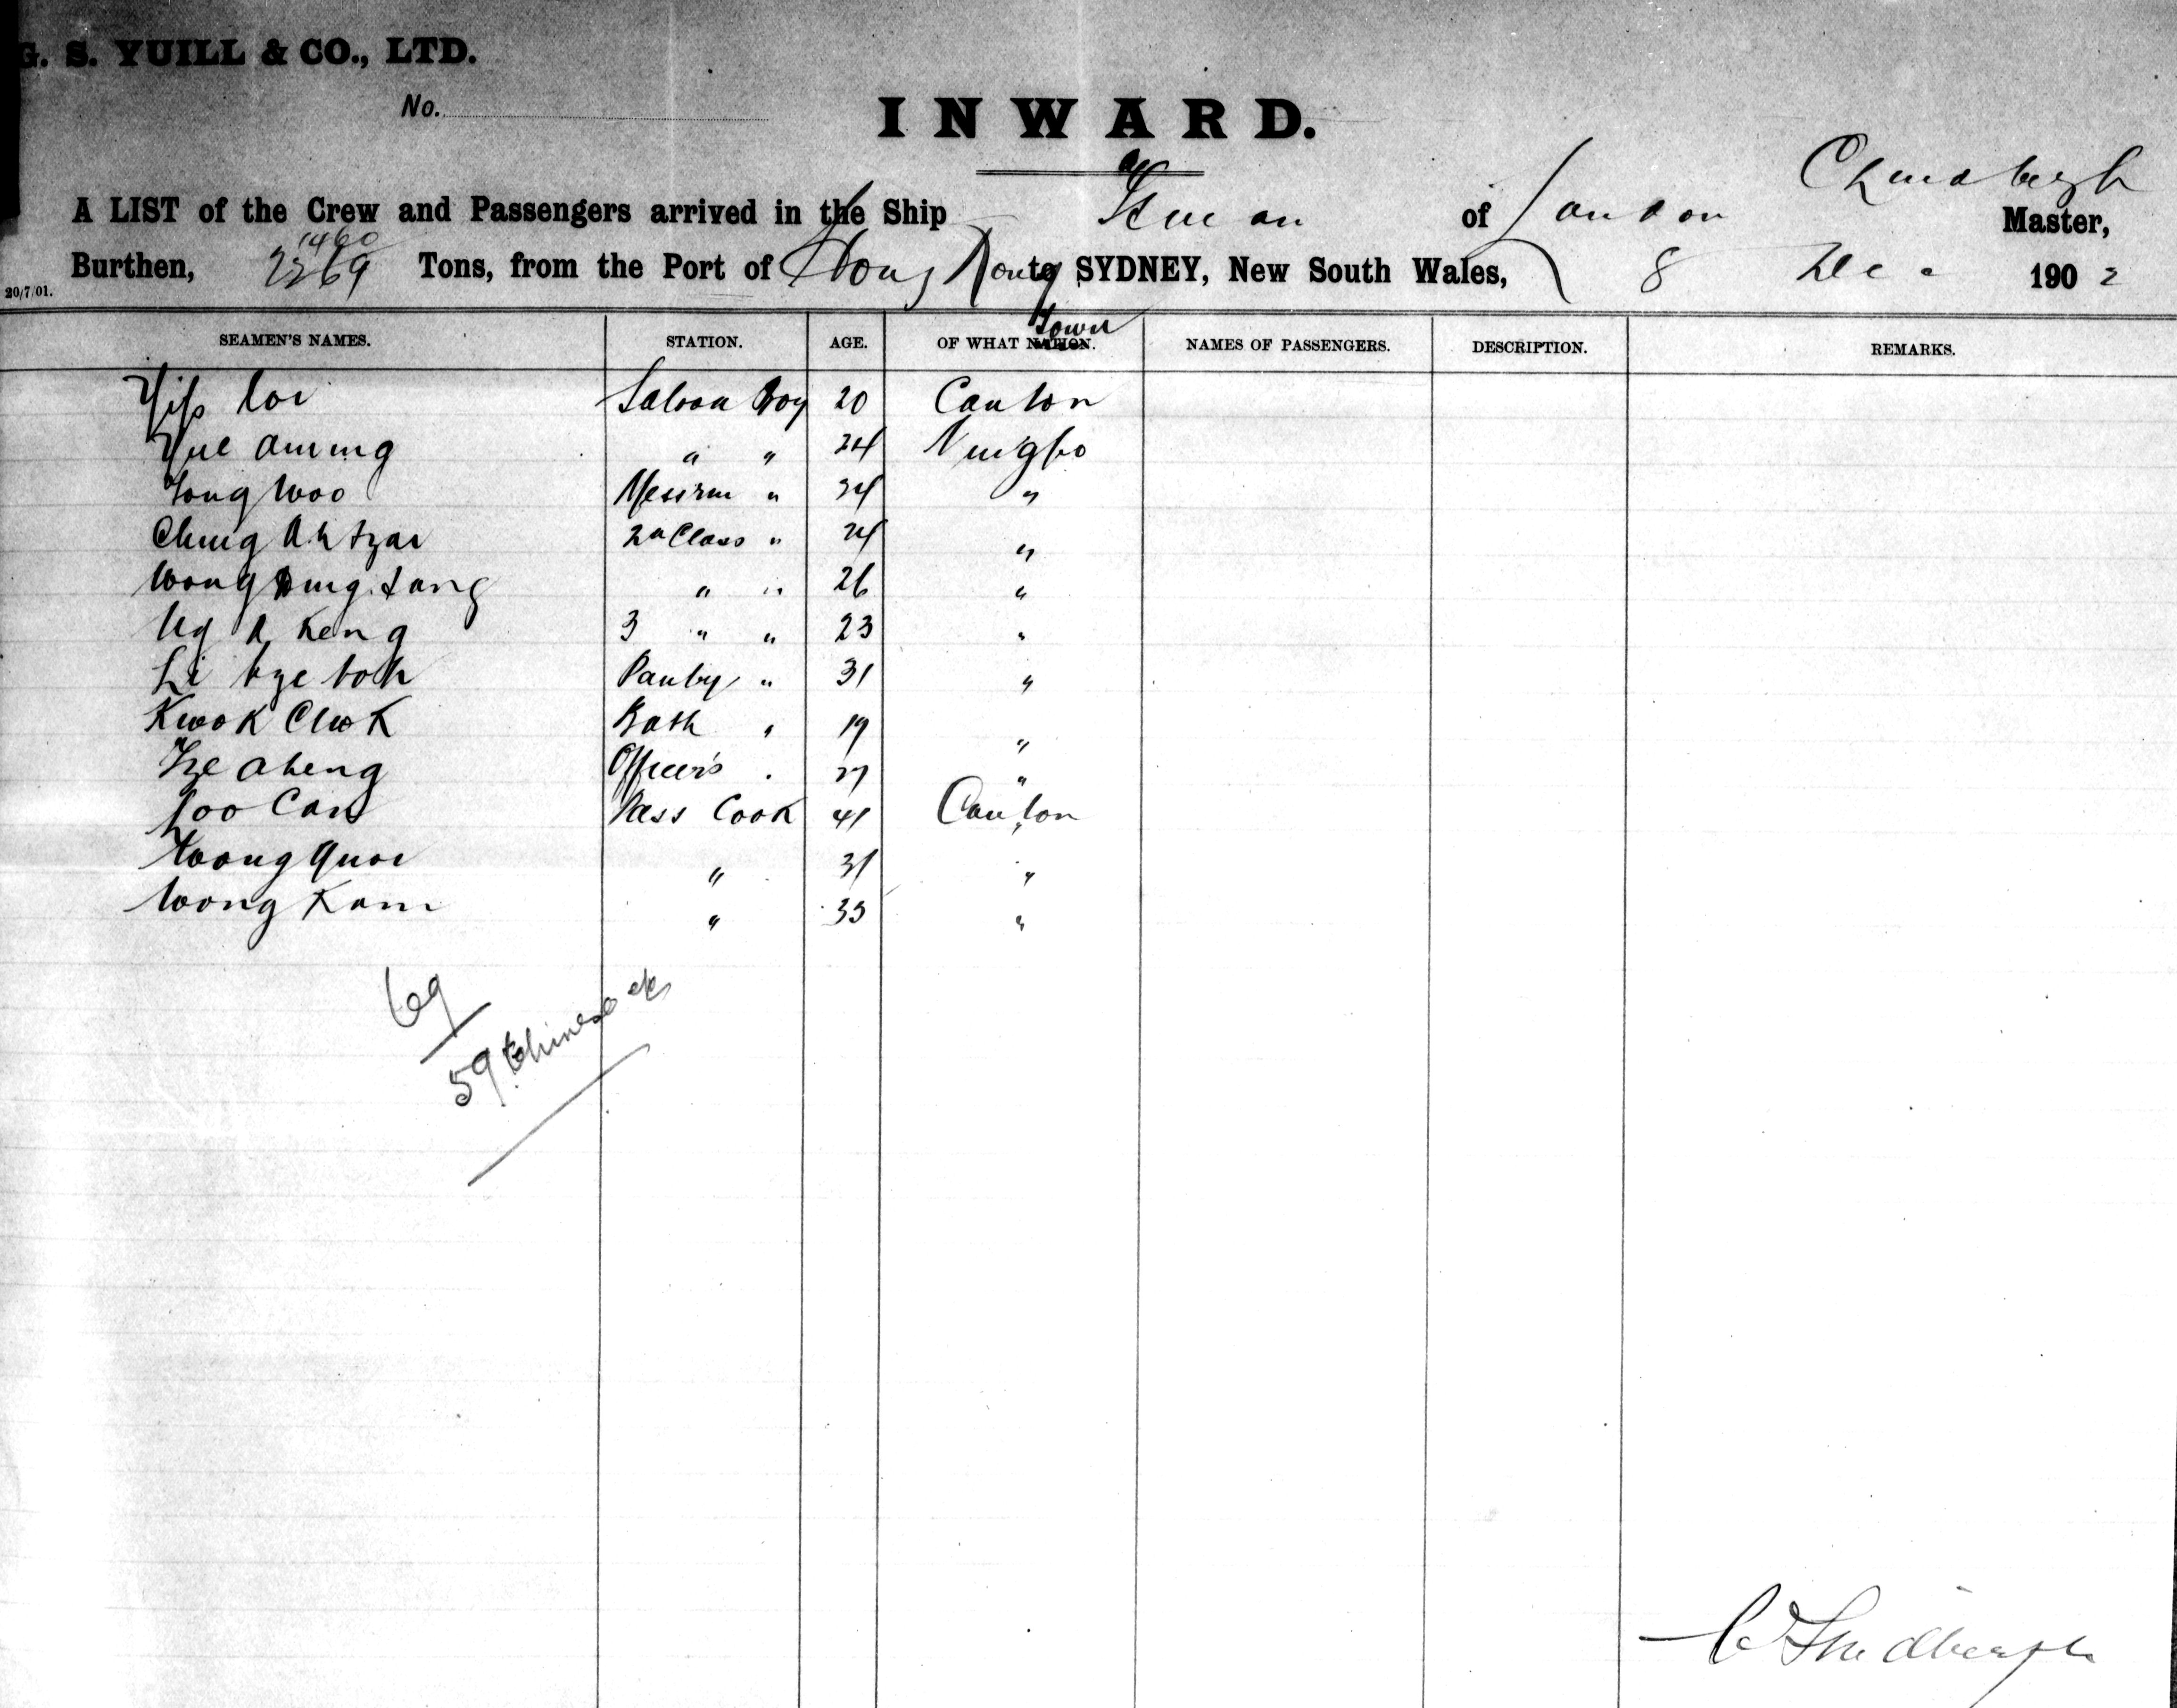 G. S. YUILL & CO., LTD.
No.
INWARD.
A LIST of the Crew and Passengers arrived in the Ship Tsinan of London C Lindbergh Master,
Burthen, 1460 2269 Tons, from the Port of Hong Kong to SYDNEY, New South Wales, 8 Dec 1902
20/7/01.
SEAMEN'S NAMES. STATION. AGE. OF WHAT NATION. Town NAMES OF PASSENGERS. DESCRIPTION. REMARKS.
Yip Loi Saloon Boy 20 Canton
Yue Aming " " 24 Ningpo
Tong Woo Messrm " 34 "
Ching Ah Tzai 2n Class " 24 "
Wong Ding Tang " " 26 "
Ng A Keng 3 " " 23 "
Li Tze Toh Pantry " 31 "
Kwok Chok Bath " 19 "
Tze Aheng Officers " 27 "
Loo Can Pass Cook 41 Canton
Wong Quai " 31 "
Wong Kam " 33 "
69
59 Chinese
C Lindbergh